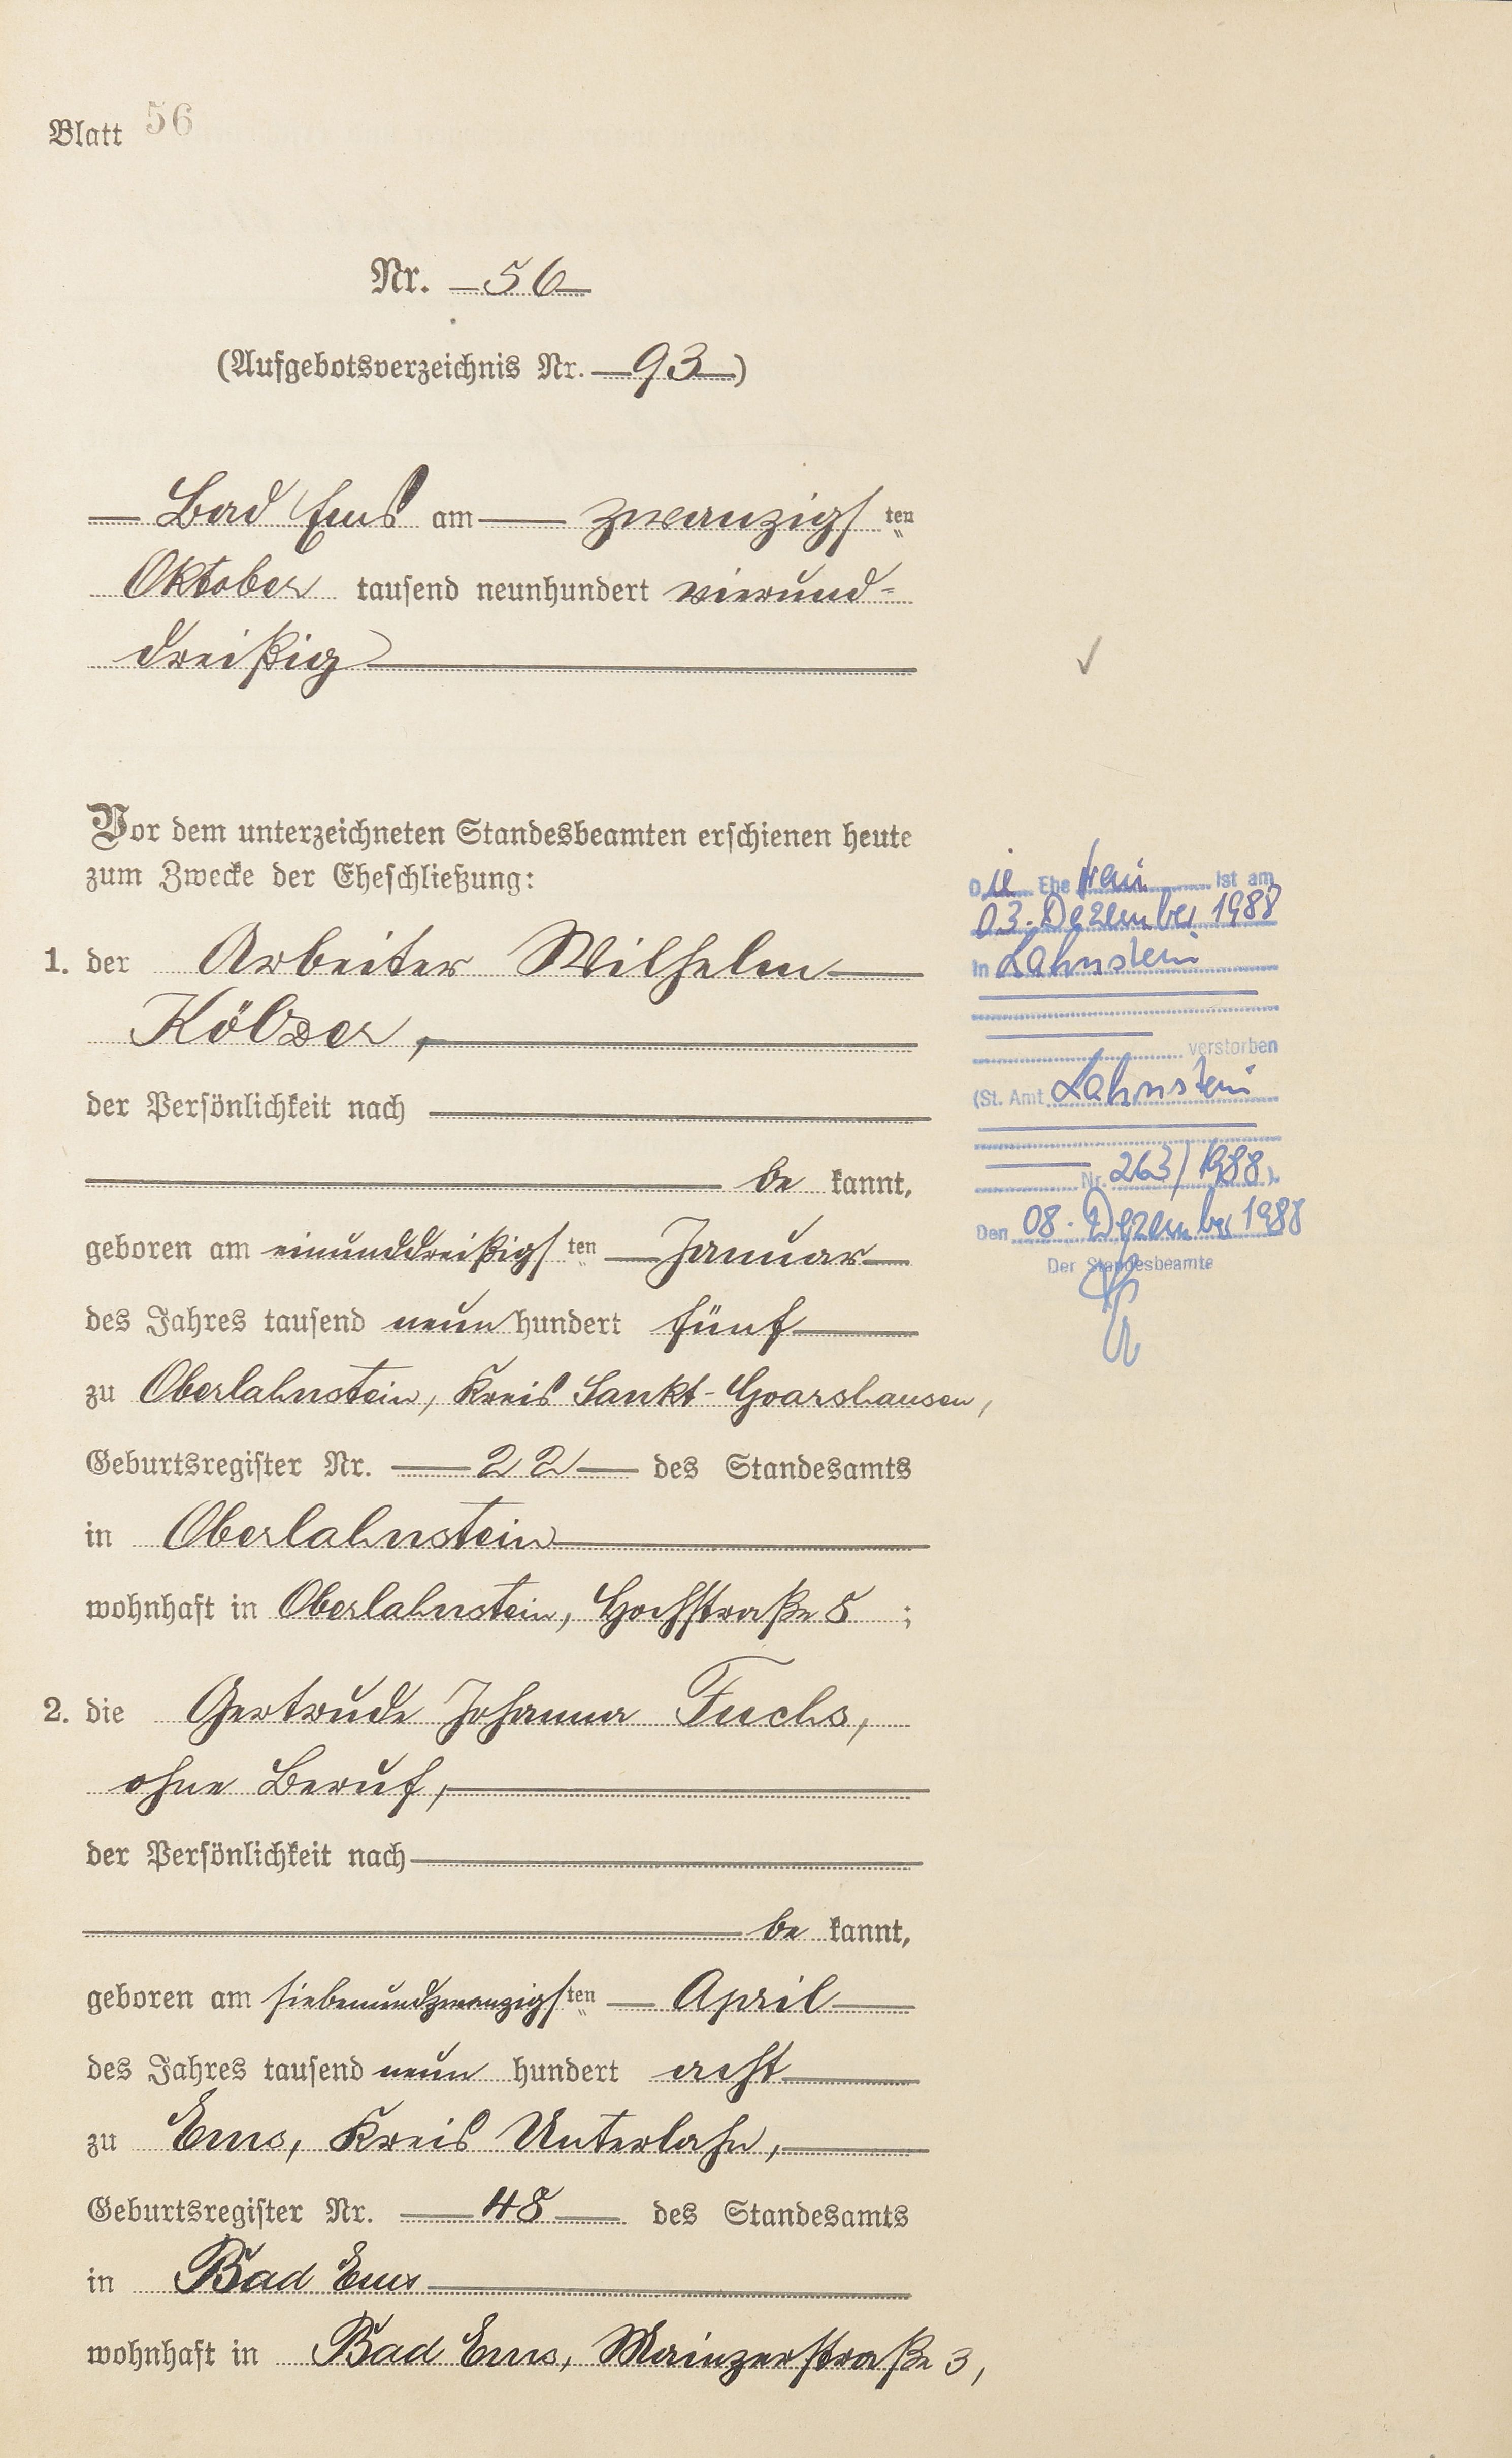 Blatt 56
Nr. 56
(Aufgebotsverzeichnis Nr. 93)
Bad Ems am zwanzigsten
Oktober tausend neunhundert vierund-
dreißig
Vor dem unterzeichneten Standesbeamten erschienen heute
zum Zwecke der Eheschließung:
1. der Arbeiter Wilhelm
Kölzer,
der Persönlichkeit nach
be kannt,
geboren am einunddreißigsten Januar
des Jahres tausend neun hundert fünf
zu Oberlahnstein, Kreis Sankt-Goarshausen,
Geburtsregister Nr. 22 des Standesamts
in Oberlahnstein
wohnhaft in Oberlahnstein, Hochstraße 5;
2. die Gertrude Johanna Fuchs,
ohne Beruf,
der Persönlichkeit nach
be kannt,
geboren am siebenundzwanzigsten April
des Jahres tausend neun hundert acht
zu Ems, Kreis Unterlahn,
Geburtsregister Nr. 48 des Standesamts
in Bad Ems
wohnhaft in Bad Ems, Mainzerstraße 3,
Die Ehefrau ist am
03. Dezember 1988
in Lahnstein
verstorben
(St. Amt Lahnstein
Nr. 263/1988).
Den 08. Dezember 1988
Der Standesbeamte